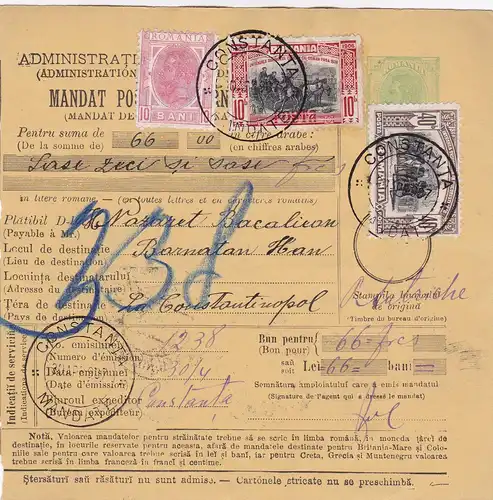 ADMINISTRAȚI
(ADMINISTRATION
MANDAT PO
(MANDAT DE
ROMANIA
10 BANI 10
CONSTANTA
MANDATE
ROMANIA
10 10
40 40
CONSTANTA
Pentru suma de 66 00 în cifre arabe:
(De la somme de) (en chiffres arabes)
Șase zeci și șase frcs
în litere romane, — (en toutes lettres et en caractères romains)
Plătibil D-lui Nazaret Bacalieon
(Payable à Mr.)
Locul de destinație Barnatan Han
(Lieu de destination)
Locuința destinatarului
(Adresse du destinataire)
Țéra de destinație La Constantinopol
(Pays de destination)
Stampila
(Timbre du bureau d'origine)
CONSTANTA
MANDATE
Indicații de serviciu
No. emisiunei 1238
(Numéro d'émission)
Data emisiunei 30/4
(Date d'émission)
Biuroul expeditor Constanța
(Bureau expéditeur)
Bun pentru 66=frcs
(Bon pour)
Lei 66= bani =
Semnătura amploiatului care a emis mandatul
(Signature de l'agent qui a dressé le mandat)
Notă. Valoarea mandatelor pentru străinătate trebue să se scrie în limba română, în moneta țărei de
destinație, în locurile reservate pentru aceasta, afară de mandatele destinate pentru Britania-Mare și Colo-
niile sale pentru care valoarea trebue scrisă în lei și bani, iar pentru Creta, Grecia și Muntenegru valoarea
trebue scrisă în limba franceză în franci și centime.
Ștersături sau răsături nu sunt admise. — Cartónele stricate nu se preschimbă.